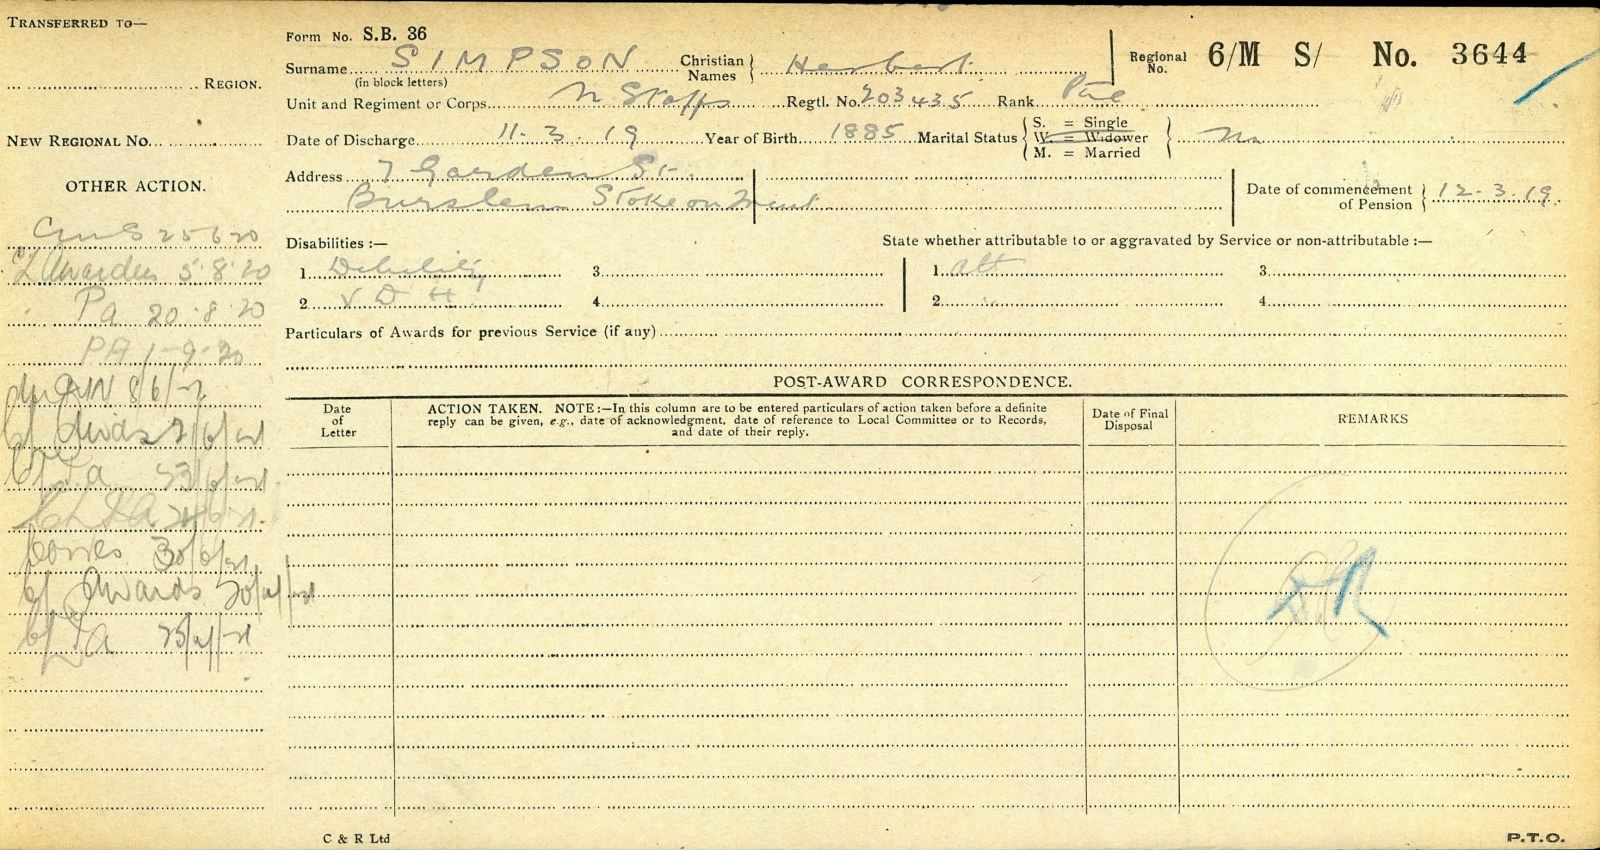 TRANSFERRED TO—
REGION.
NEW REGIONAL No.
OTHER ACTION.
25 6 20
Awards 5.8.20
PA 20.8.20
PA 1-9-20
8/6/21
Awards
Awards
Form No. S.B. 36
Surname SIMPSON
(in block letters)
Christian Names Herbert
Regional No. 6/M S/ No. 3644
Unit and Regiment or Corps N Staffs Regtl. No. 203435 Rank Pte
Date of Discharge 11.3.19 Year of Birth 1885 Marital Status
S. = Single
W. = Widower
M. = Married
M
Address 7 Garden St.
Burslem Stoke on Trent
Date of commencement of Pension 12.3.19.
Disabilities :— State whether attributable to or aggravated by Service or non-attributable :—
1 Debility 3 1 att 3
2 V D H 4 2 4
Particulars of Awards for previous Service (if any)
POST-AWARD CORRESPONDENCE.
Date of Letter
ACTION TAKEN. NOTE:—In this column are to be entered particulars of action taken before a definite
reply can be given, e.g., date of acknowledgment, date of reference to Local Committee or to Records,
and date of their reply.
Date of Final Disposal
REMARKS
C & R Ltd
P.T.O.